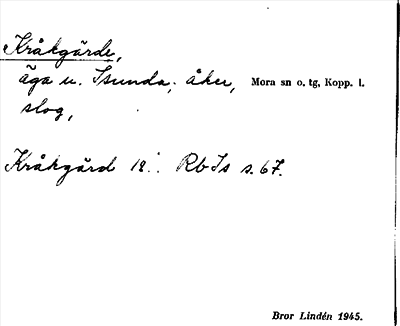 Kråkgärde,
äga u. Isunda; åker, Mora sn o. tg, Kopp. l.
slog,
Kråkgärd 18 : Rb Is s. 67.
Bror Lindén 1945.